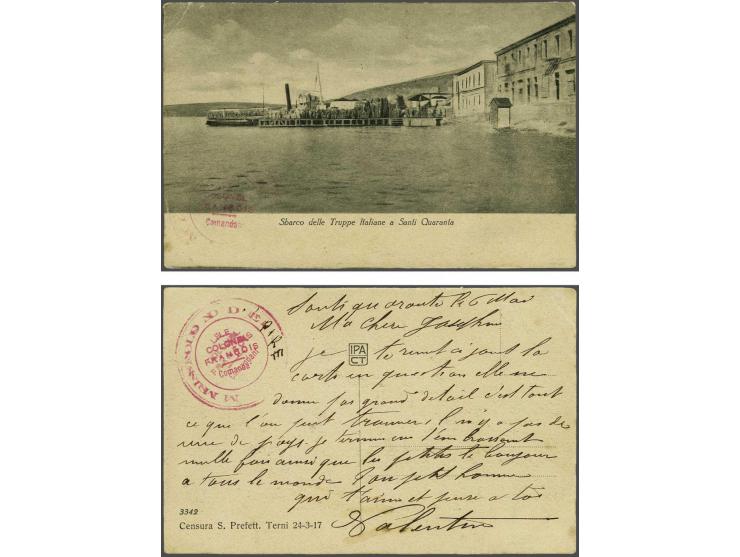 COLONEL
FRANÇOIS
Comandant
Sbarco delle Truppe Italiane a Santi Quaranta
LE
COLONEL
FRANÇOIS
Comanadant
Santi quaranta le 6 Mai
Ma chère Joséphine
IPA
CT
je te remet ci joint la
carte en question elle ne
donne pas grand détail c'est tout
ce que l'on peut trouver il n'y a pas de
vue de pays je termine en t'embrassant
mille fois ainsi que les petits le bonjour
a tous le monde Ton petit homme
qui t'aime et pense a toi
Valentin
3342
Censura S. Prefett. Terni 24-3-17